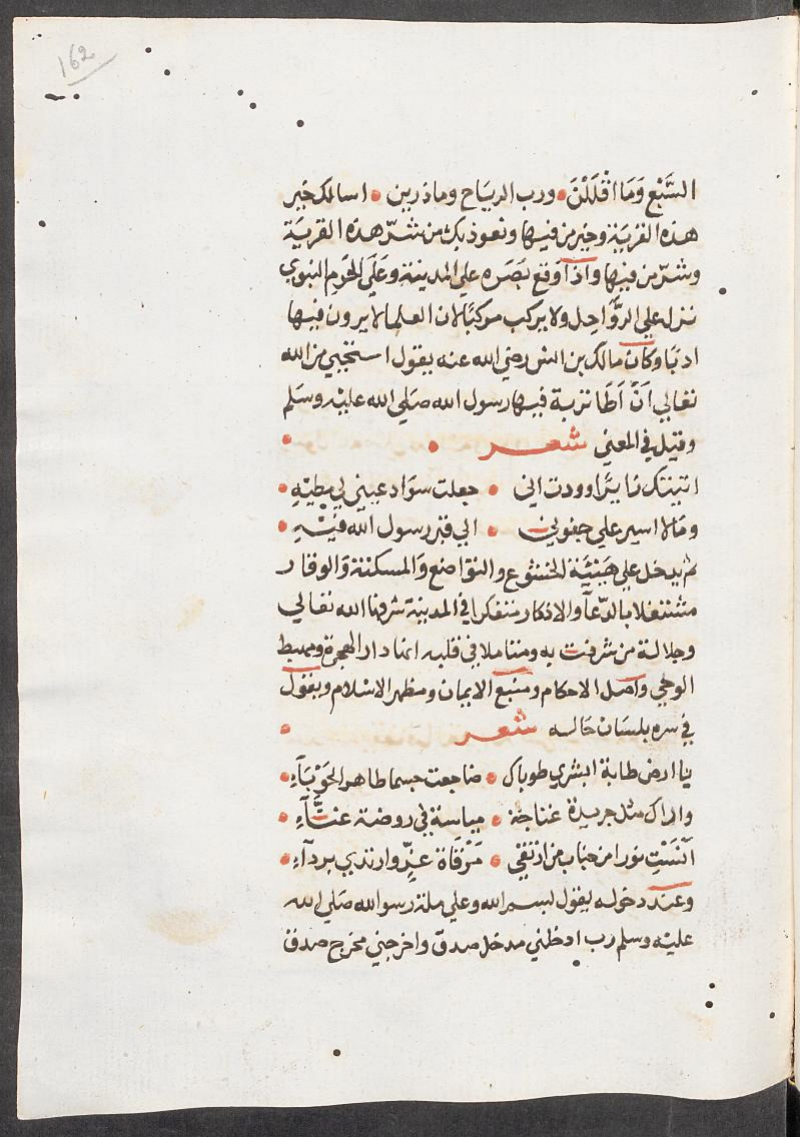 162
السَّبْع وَمَا اقْلَلْنَ • ورب الرياح وما ذرين • اسالك خير
هذه القرية وخير من فيها ونعوذ بك من شرّ هذه القرية
وشرّ من فيها واذا وقع بَصَره علي المدينة وعَلَي الحَرَم النبوي
نزل علي الرَّوَاحِل ولا يركب مركبًا لان العلما لا يرون فيها
ادبا وكان مالك بن انس رضي الله عنه يقول استحيي من الله
تعالي اَنْ اَطَا تربة فيها رسول الله صَلي الله عليْه وسَلم
وقيل في المعني شعر • •
اتيتك زايرًا وودت اني • جعلت سوَاد عيني لي مطيْهِ •
وما لا اسير علي جفوني • الي قبر رسول الله فيْهِ •
ثم يدخل علي هَيْئَة الخشوع والتواضع وَالمسكنة وَالوقار
مشتغلا بالدّعآ والاذكار متفكرا في المدينة شرفها الله تعالي
وجلالة من شرفت به ومتاملا في قلبه انها دار الهجرة ومهبط
الوحي واصل الاحكام ومنبع الايمان ومظهر الاسلام ويقول
في سره بلسَان حَاله شعر •
يا ارض طابة ابشري طوباك • ضاجعت جسما طاهر الحَوْبَآءِ •
واراك مثل جريدة غناجة • مياسة في روضة غنَّآءِ •
آنَسْتِ نورا من جناب من ارتقي • مَرْقَاة عِزّ وارتدي بردآءِ •
وعند دخوله يقول بسم الله وعلي ملة رسوالله صَلي الله
عليْه وسلم رب ادخلني مدخل صدق واخرجني مخرج صدق